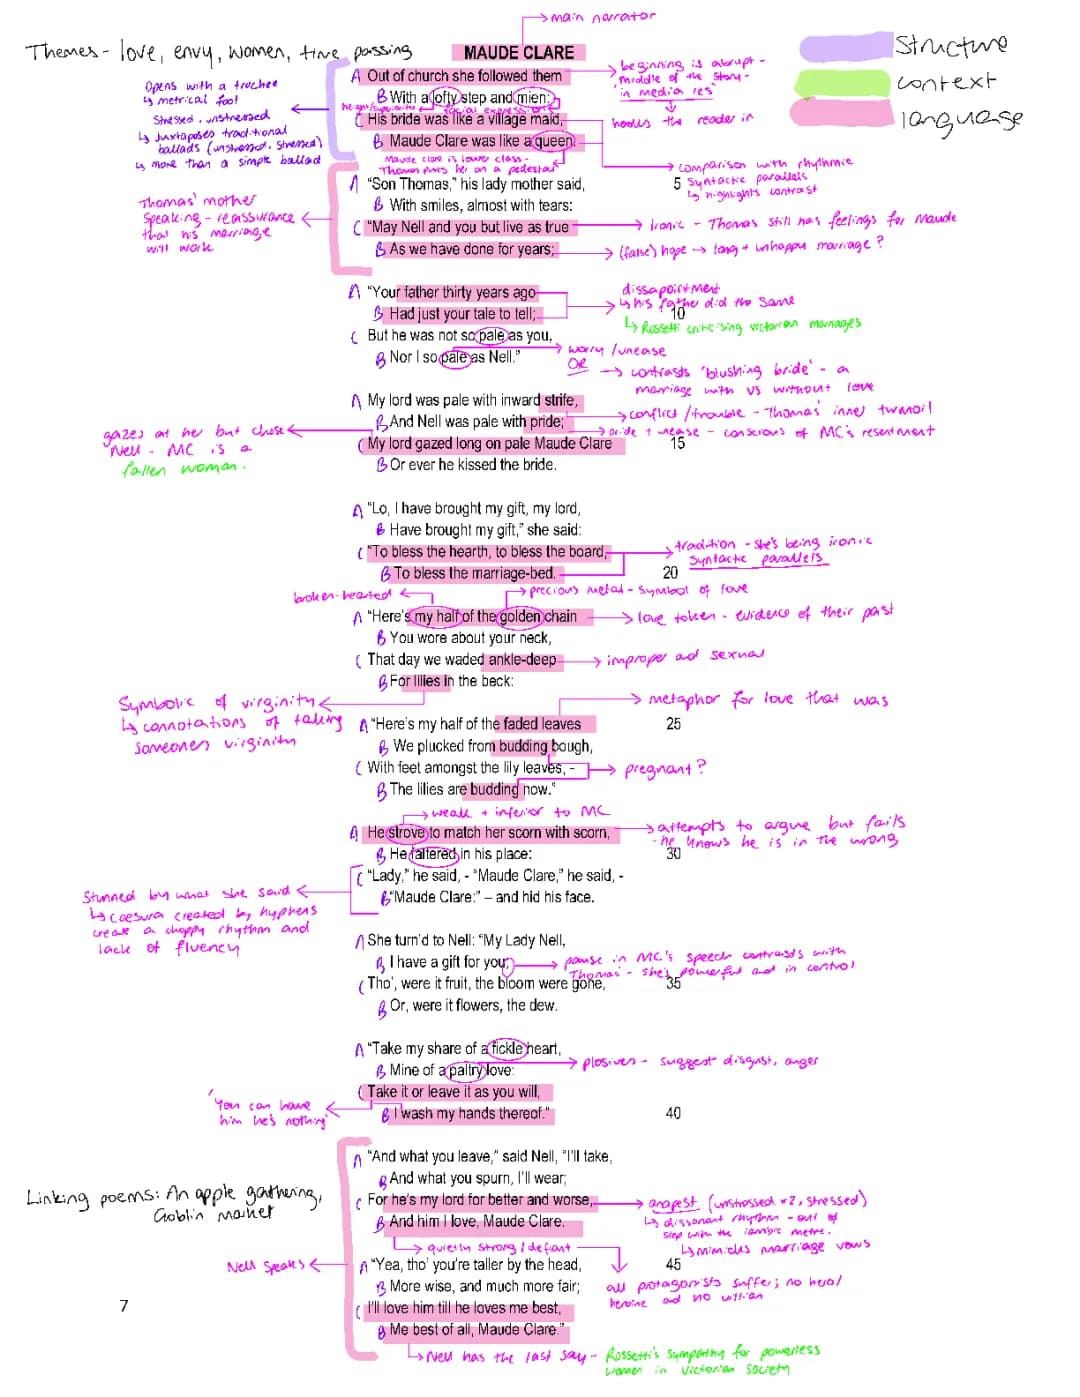 main narrator
Themes - love, envy, women, time passing
MAUDE CLARE
Structure
context
language
Opens with a trochee
↳ metrical foot
Stressed, unstressed
↳ Juxtaposes traditional
ballads (unstressed, stressed)
↳ more than a simple ballad
A Out of church she followed them
B With a lofty step and mien:
height/superiority
facial expression
C His bride was like a village maid,
B Maude Clare was like a queen.
Maude Clare is lower class -
Thomas puts her on a pedestal
beginning is abrupt -
middle of the story -
'in media res'
hooks the reader in
comparison with rhythmic
syntactic parallels
↳ highlights contrast
Thomas' mother
speaking - reassurance
that his marriage
will work
A "Son Thomas," his lady mother said, 5
B With smiles, almost with tears:
C "May Nell and you but live as true
B As we have done for years;
Ironic - Thomas still has feelings for Maude
(false) hope → long + unhappy marriage?
A "Your father thirty years ago
B Had just your tale to tell; 10
C But he was not so pale as you,
B Nor I so pale as Nell."
dissapointment
↳ his father did the same
↳ Rossetti criticising victorian marriages
worry/unease
OR
→ contrasts 'blushing bride' - a
marriage with vs without love
A My lord was pale with inward strife,
B And Nell was pale with pride;
C My lord gazed long on pale Maude Clare 15
B Or ever he kissed the bride.
conflict/trouble - Thomas' inner turmoil
pride + unease - conscious of MC's resentment
gazes at her but chose
Nell - MC is a
fallen woman.
A "Lo, I have brought my gift, my lord,
B Have brought my gift," she said:
C "To bless the hearth, to bless the board,
B To bless the marriage-bed. 20
tradition - she's being ironic
syntactic parallels
broken-hearted
precious metal - symbol of love
A "Here's my half of the golden chain
B You wore about your neck,
C That day we waded ankle-deep
B For lilies in the beck:
love token - evidence of their past
improper and sexual
Symbolic of virginity
↳ connotations of taking
someones virginity
metaphor for love that was
A "Here's my half of the faded leaves 25
B We plucked from budding bough,
C With feet amongst the lily leaves, -
B The lilies are budding now."
pregnant?
weak + inferior to MC
A He strove to match her scorn with scorn,
B He faltered in his place: 30
C "Lady," he said, - "Maude Clare," he said, -
B "Maude Clare:" – and hid his face.
attempts to argue but fails
- he knows he is in the wrong
Stunned by what she said
↳ caesura created by hyphens
create a choppy rhythm and
lack of fluency
A She turn'd to Nell: "My Lady Nell,
B I have a gift for you;
C Tho', were it fruit, the bloom were gone, 35
B Or, were it flowers, the dew.
pause in MC's speech contrasts with
Thomas' - she's powerful and in control
A "Take my share of a fickle heart,
B Mine of a paltry love:
C Take it or leave it as you will,
B I wash my hands thereof." 40
plosives - suggest disgust, anger
'You can have
him he's nothing'
A "And what you leave," said Nell, "I'll take,
B And what you spurn, I'll wear;
C For he's my lord for better and worse,
B And him I love, Maude Clare.
anapest (unstressed x2, stressed)
↳ dissonant rhythm - out of
step with the iambic metre.
↳ mimicks marriage vows
quietly strong/defiant
Linking poems: An apple gathering,
Goblin Market
Nell speaks
A "Yea, tho' you're taller by the head, 45
B More wise, and much more fair;
C I'll love him till he loves me best,
B Me best of all, Maude Clare."
all protagonists suffer; no hero/
heroine and no villian
Nell has the last say - Rossetti's sympathy for powerless
women in victorian society
7